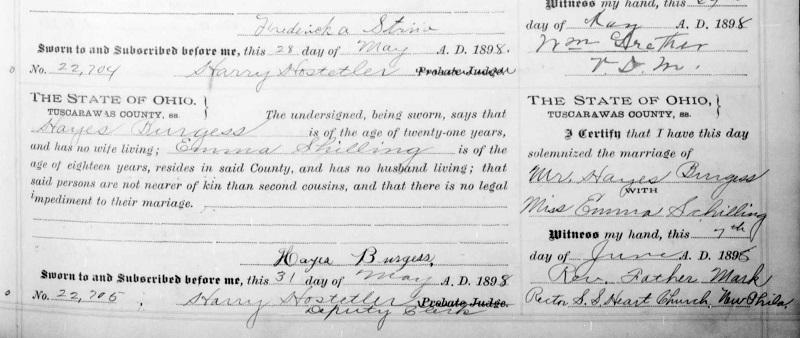 Frederick A Stein
Sworn to and Subscribed before me, this 28 day of May A. D. 1898.
No. 22,704 Harry Hostetler Probate Judge.
THE STATE OF OHIO.
TUSCARAWAS COUNTY, ss.
The undersigned, being sworn, says that
Hayes Burgess is of the age of twenty-one years,
and has no wife living; Emma Shilling is of the
age of eighteen years, resides in said County, and has no husband living; that
said persons are not nearer of kin than second cousins, and that there is no legal
impediment to their marriage.
Hayes Burgess,
Sworn to and Subscribed before me, this 31 day of May A. D. 1898
No. 22,705, Harry Hostetler Probate Judge.
Deputy Clerk
Witness my hand, this
day of May A. D. 1898
Wm
V. D. M.
THE STATE OF OHIO,
TUSCARAWAS COUNTY, ss.
I Certify that I have this day
solemnized the marriage of
Mr. Hayes Burgess
WITH
Miss Emma Schilling
Witness my hand, this 7th
day of June A. D. 1898
Rev. Father Mark
Rector S. S Heart Church, New Phila.